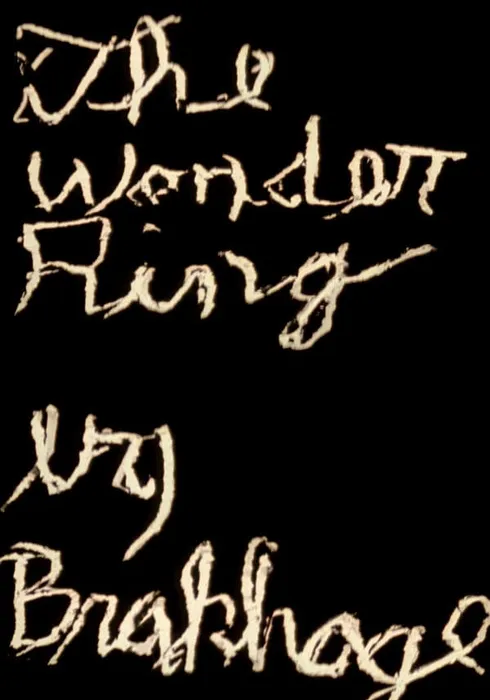 The
Wonder
Ring
by
Brakhage